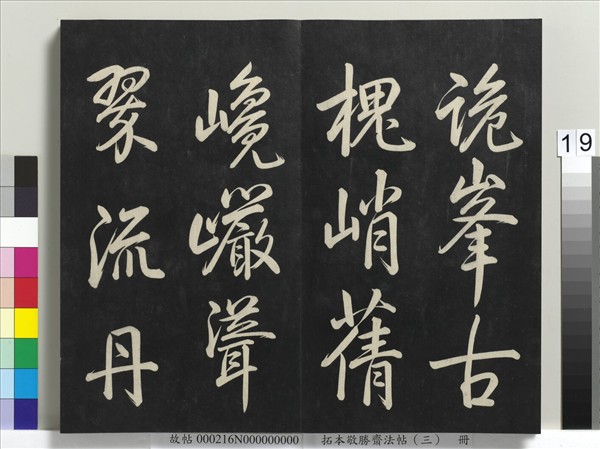 詭峯古
槐峭蒨
巉巖聳
翠流丹
19
故帖 000216N000000000 拓本敬勝齋法帖（三） 冊